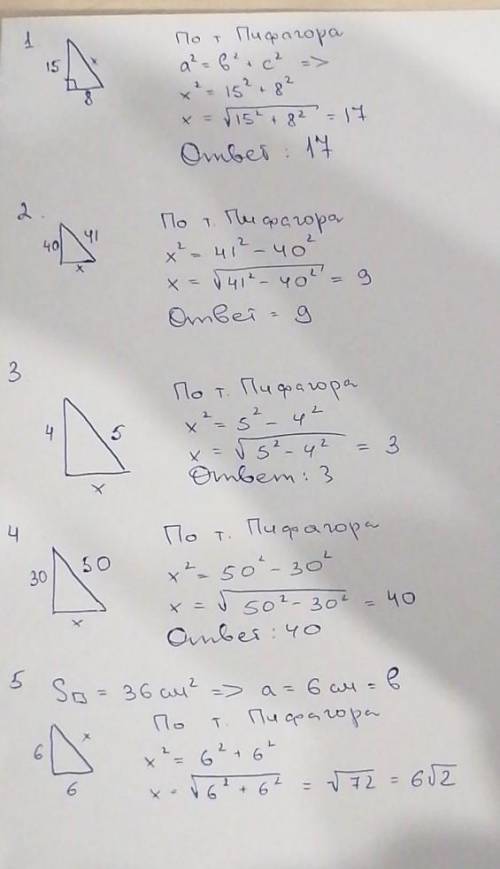 1
15
x
8
По т. Пифагора
a² = в² + c² =>
x² = 15² + 8²
x = √15² + 8² = 17
Ответ : 17
2.
40
41
x
По т. Пифагора
x² = 41² - 40²
x = √41² - 40² = 9
Ответ = 9
3
4
5
x
По т. Пифагора
x² = 5² - 4²
x = √5² - 4² = 3
Ответ : 3
4
30
50
x
По т. Пифагора
x² = 50² - 30²
x = √50² - 30² = 40
Ответ : 40
5 S□ = 36 см² => a = 6 см = в
6
x
6
По т. Пифагора
x² = 6² + 6²
x = √6² + 6² = √72 = 6√2